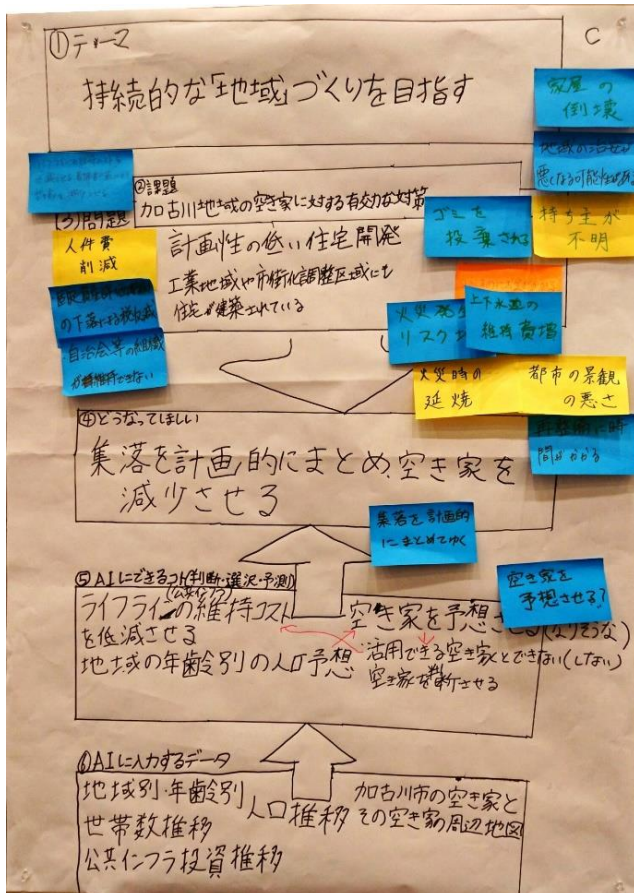 ①テーマ
C
持続的な「地域」づくりを目指す
家屋の
倒壊
地域の治安が
悪くなる可能性がある
②課題
加古川地域の空き家に対する有効な対策
ゴミを
投棄される
持ち主が
不明
(3)問題
人件費
削減
計画性の低い住宅開発
工業地域や市街化調整区域にも
住宅が建築されている
の下落による税収減
自治会等の組織
が維持できない
火災発生
リスク
上下水道の
維持費増
火災時の
延焼
都市の景観
の悪さ
再整備に時
間がかかる
④どうなってほしい
集落を計画的にまとめ、空き家を
減少させる
集落を計画的
にまとめてゆく
空き家を
予想させる?
⑤AIにできるコト(判断・選択・予測)
(公共インフラ)
ライフラインの維持コスト
を低減させる
地域の年齢別の人口予想
空き家を予想させる(なりそうな)
活用できる空き家とできない(しない)
空き家を判断させる
⑥AIに入力するデータ
地域別・年齢別
人口推移
世帯数推移
公共インフラ投資推移
加古川市の空き家と
その空き家の周辺地図